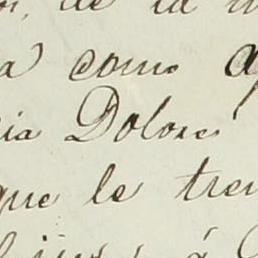 de la
a como
ia Dolores
que le tren
á